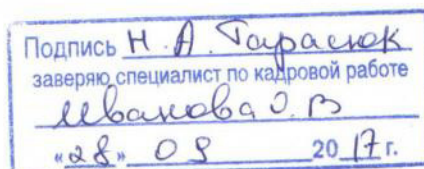 Подпись Н. А. Тарасюк
заверяю специалист по кадровой работе
Иванова О. В
«28» 09 2017 г.